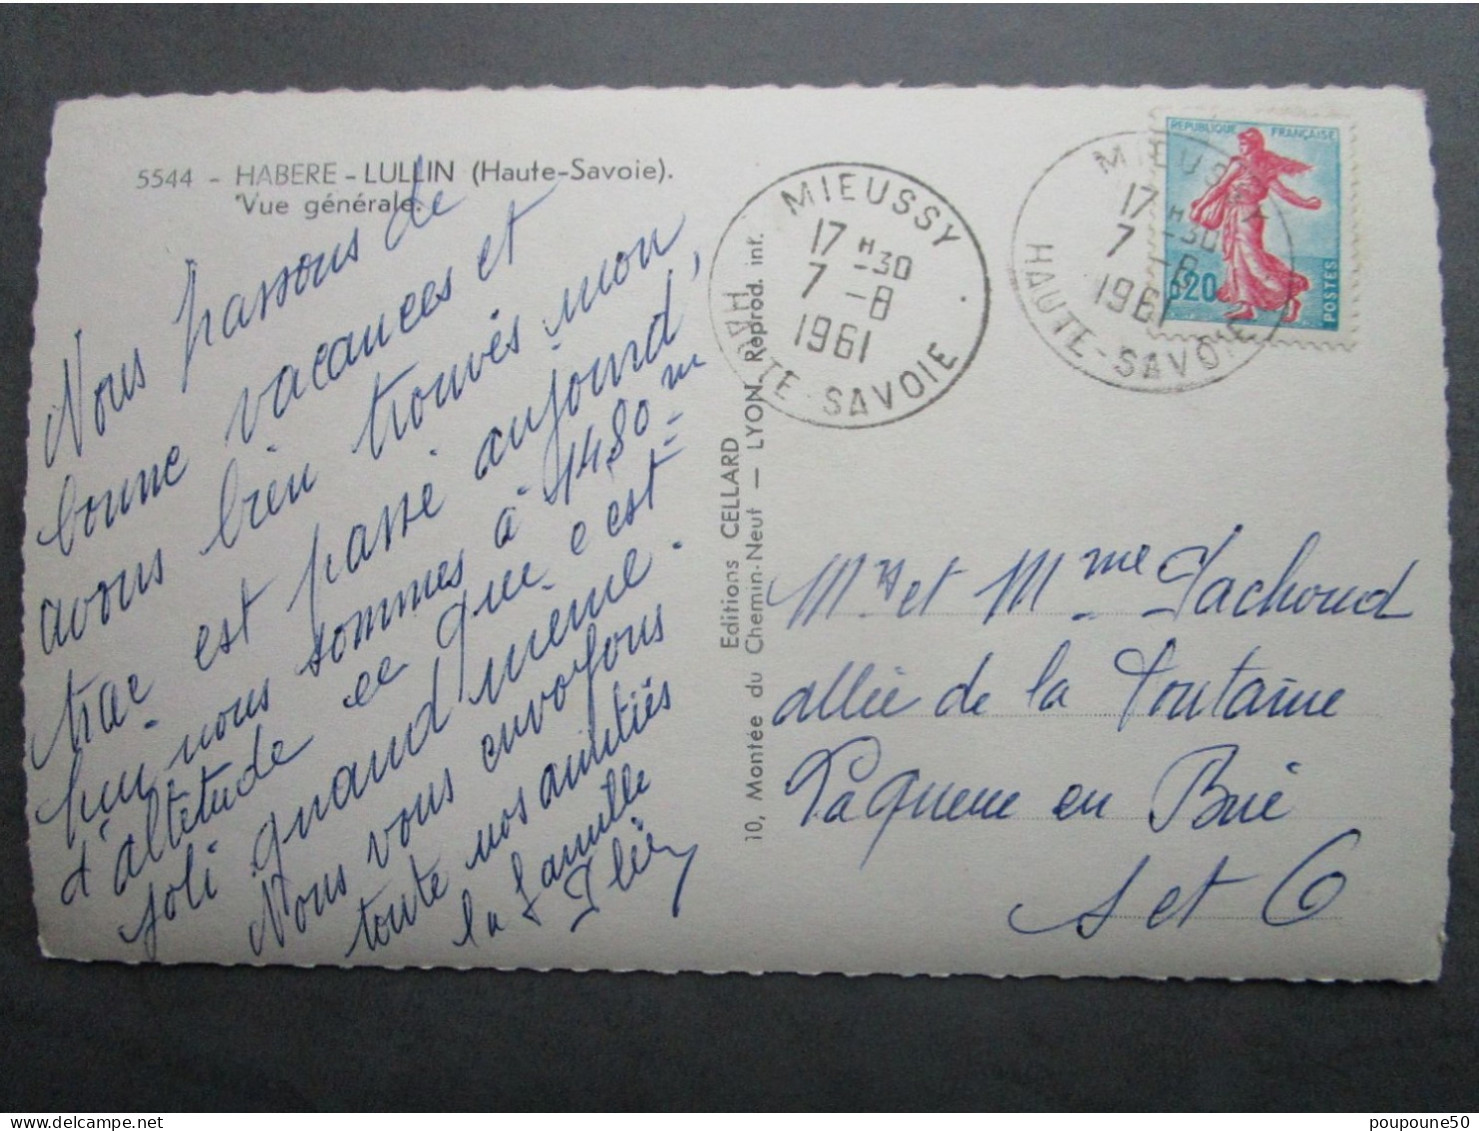 5544 - HABERE - LULLIN (Haute-Savoie).
Vue générale.
Nous passons de
bonne vacances et
avons bien trouvés mon
trac est passé aujourd'
hui nous sommes à 1480 m
d'altétude ce que c'est
joli quand meme.
Nous vous envoyons
toute nos amitiés
la famille
MIEUSSY
17 H 30
7 - 8
1961
HAUTE-SAVOIE
MIEUSSY
17 H 30
7 - 8
1961
HAUTE-SAVOIE
REPUBLIQUE FRANÇAISE
0,20
POSTES
Editions CELLARD
10, Montée du Chemin-Neuf — LYON. Reprod. int.
Mr et Mme Pachoud
allée de la Fontaine
Laqueue en Brie
S et O
poupoune50